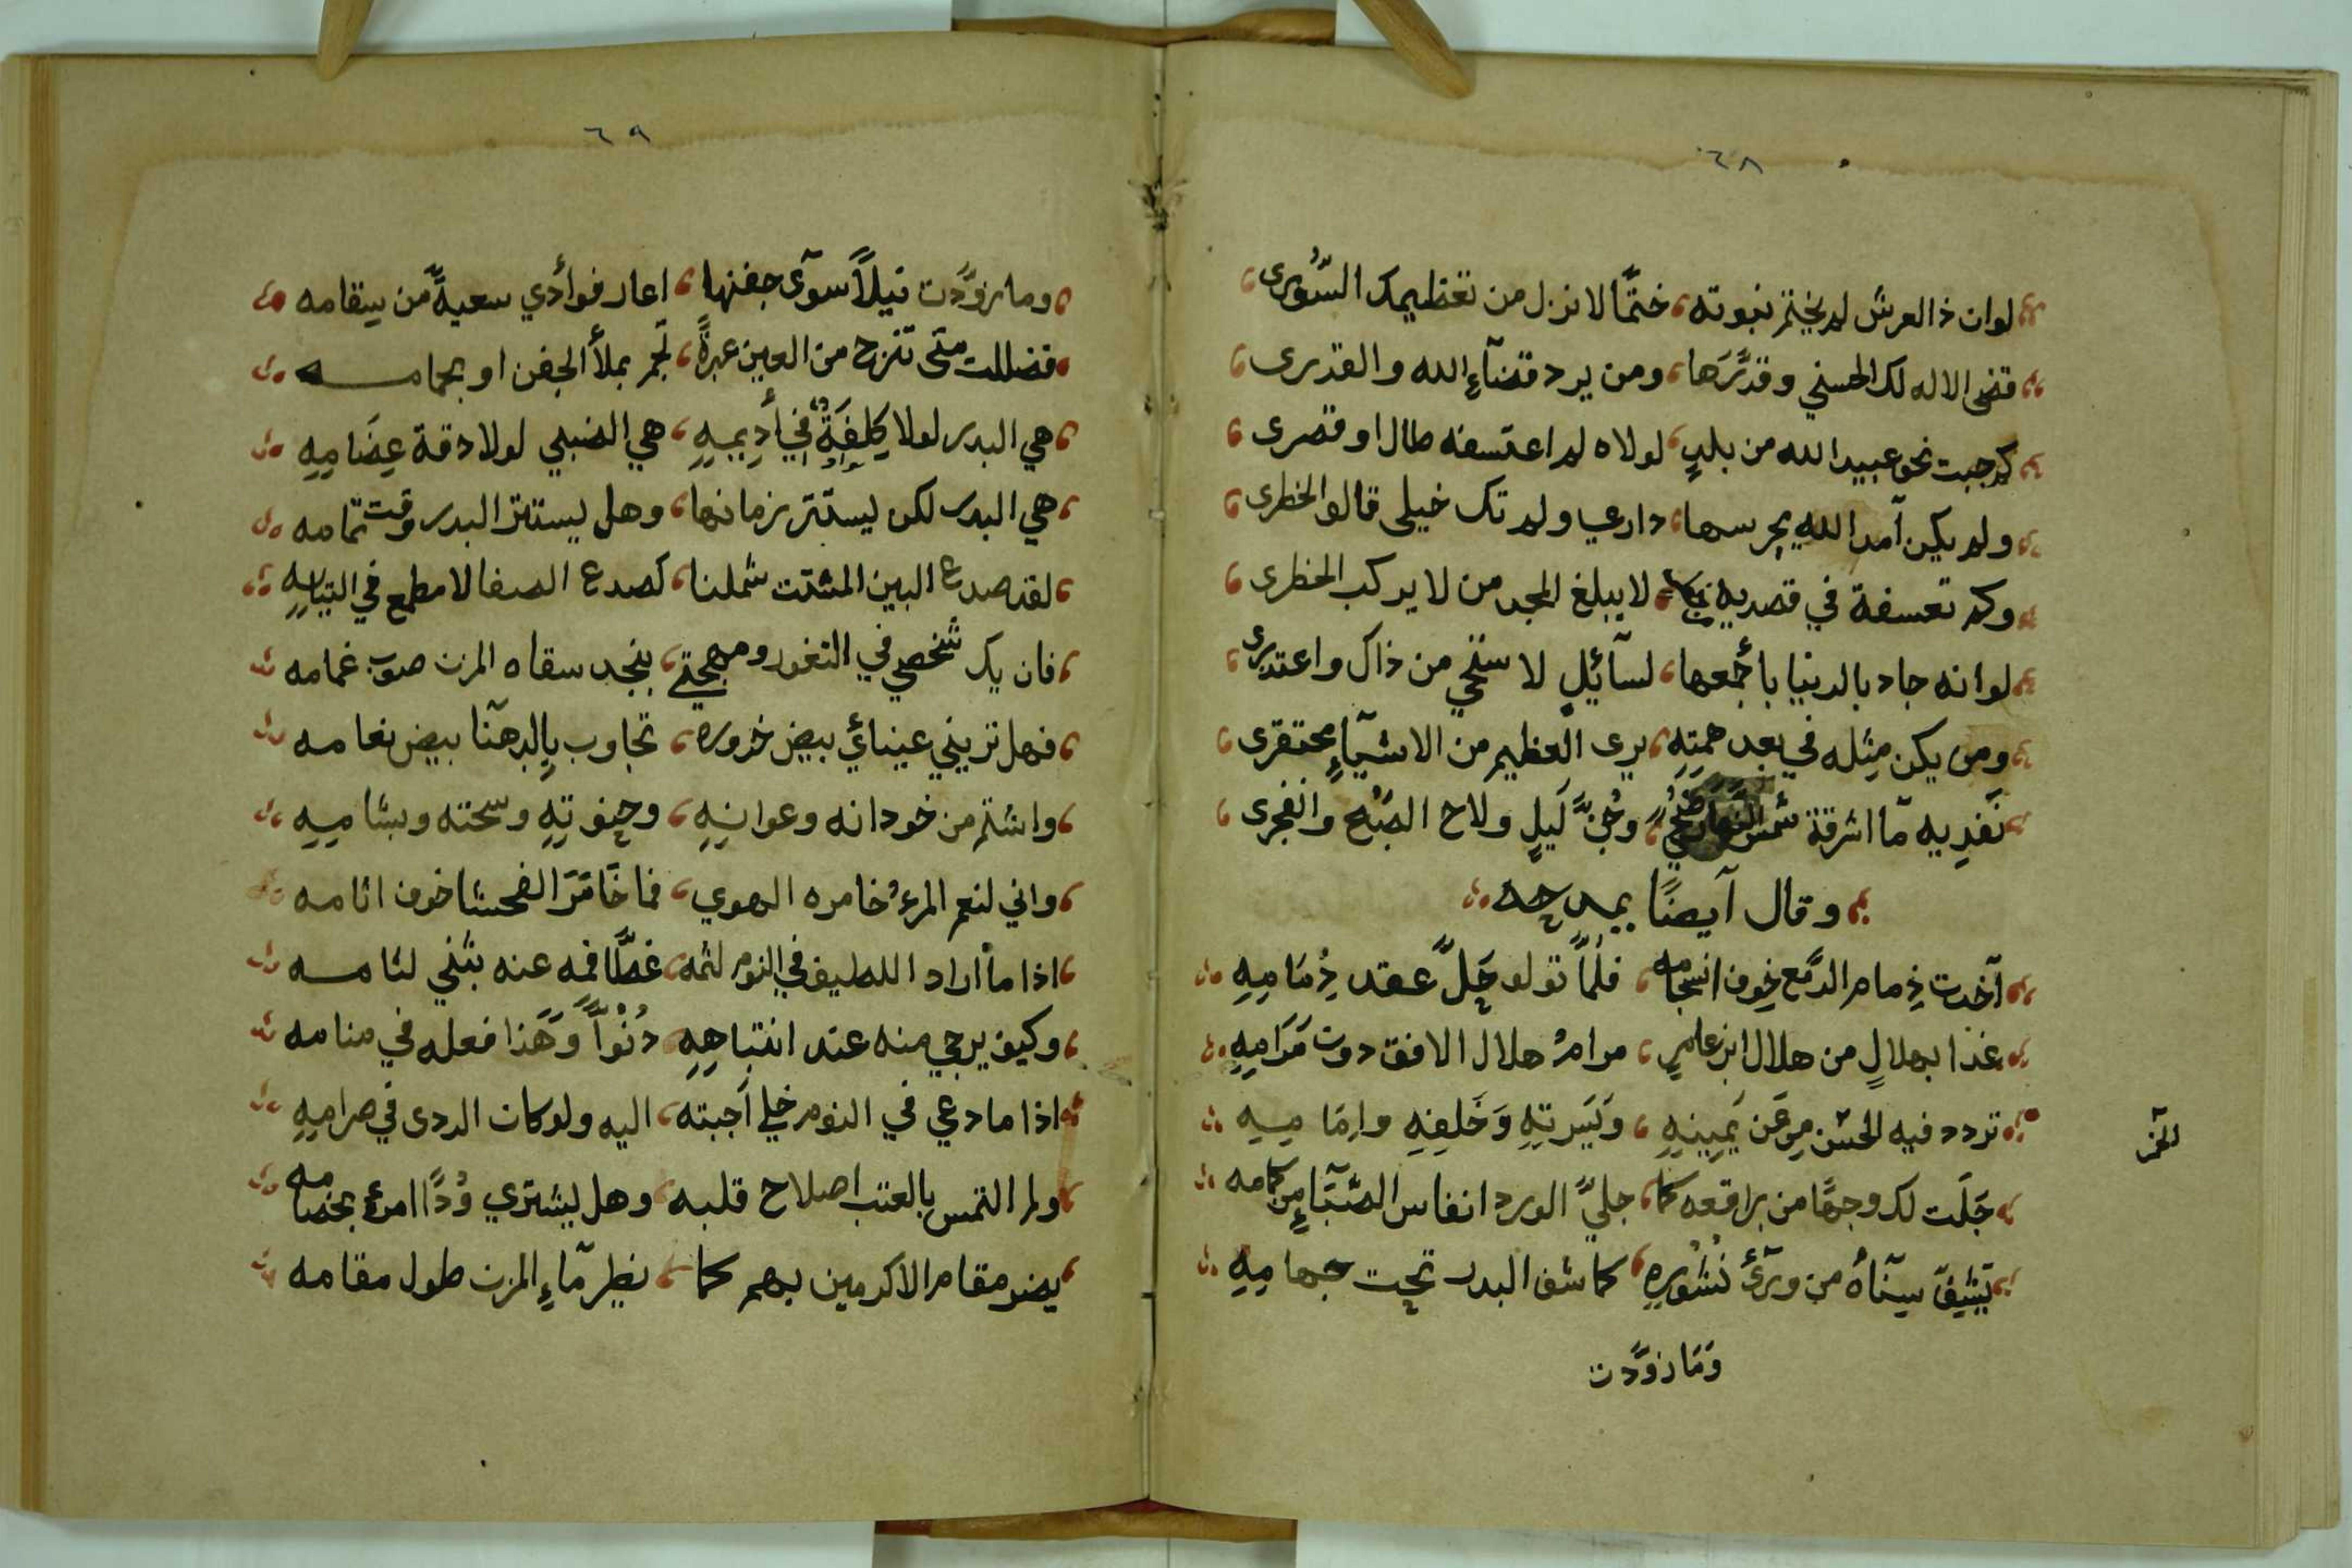 ٦٨
لوان ذا العرش لم يختم نبوته ختمًا لانزل من تعظيمك السُّوَرى
قضى الاله لك الحسني وقدَّرَها ومن يرد قضآءِ الله والقدرى
كم جبت نحو عبيد الله من بلدٍ لولاه لم اعتسفه طال او قصرى
ولم يكن آمد الله يجرسها دارى ولم تك خيلى قالوا لخطرى
وكم تعسفة في قصديه لا يبلغ المجد من لا يركب الخطرى
لوانه جاد بالدنيا باجمعها لسآئيلٍ لا ستحي من ذاك واعتذرى
ومن يكن مِثله في بعد همتهِ يرى العظيم من الاشيآءِ محتقرى
نَفدِيه مآ اشرقة شمس وجُنَّ لَيلٍ ولاح الصّبح وانفجرى
وقال آيضًا يمدحه
آخدت ذِمام الدّمع خِوف انسجامه فلمّا تولو حَلَّ عقد ذِمَامِيهِ
غذا بهلالٍ من هلال ابن عامرٍ مرامُ هلال الافق دون مَرَامِيهِ
الخمر
تردد فيه الحسن مِن عَن يَمِينِهِ وَيَسرتِهِ وَخَلفِهِ وامَامِيهِ
جَلَت لك وجهًا من براقعه كما جليَّ الورد انفاس الصّبَآءِ من كمامه
تشِفّ سِنآهُ من ورآئِ نُشُورِهِ كما شف البدر تحت جهامِيهِ
وَمَا زوَّدت
٦٩
وما زوَّدت نيلاً سوآى جفنها اعار فوأدي سعيةً من سِقامه
فضللت متى تنزح من العين عبرةً تجر بملأ الجفن او بجامـه
هي البدر لولا كِلِفَةٌ في أَدِيمِهِ هي الضبي لولا دقة عِضَامِهِ
هي البدر لكن ليستتر زمانها وهل يستتر البدر وقت تمامه
لقد صدع البين المشتت شملنا كصدع الصفا لا مطمع في التيامهِ
فان يك شخصي في التغور ومهجتي بنجد سقاه المزن صوب غمامه
فهل تريني عينائي بيض خدوره تجاوب بِالدهنا بيض نعامه
واشتم من خودانه وعوانِهِ وحِنوتهِ وسحته وبشامِيهِ
واني لنعم المرءُ خامره الهوي فما خَامَرَ الفحشا خوف اثامه
اذا ما أراد اللطيف في النوم لثمه غطّا فمه عنه بثني لثامـه
وكيف يرجي منه عند انتباهِهِ دُنْوًّا وَهَذا فعله في منامه
اذا ما دعي في النوم خلي اَجبته اليه ولو كان الردى في صرامِهِ
ولم التمس بالعتب اصلاح قلبه وهل يشتري وُدًّا امرئٍ بخصامه
يضر مقام الاكرمين بهم كما يضر مآءِ المزن طول مقامه